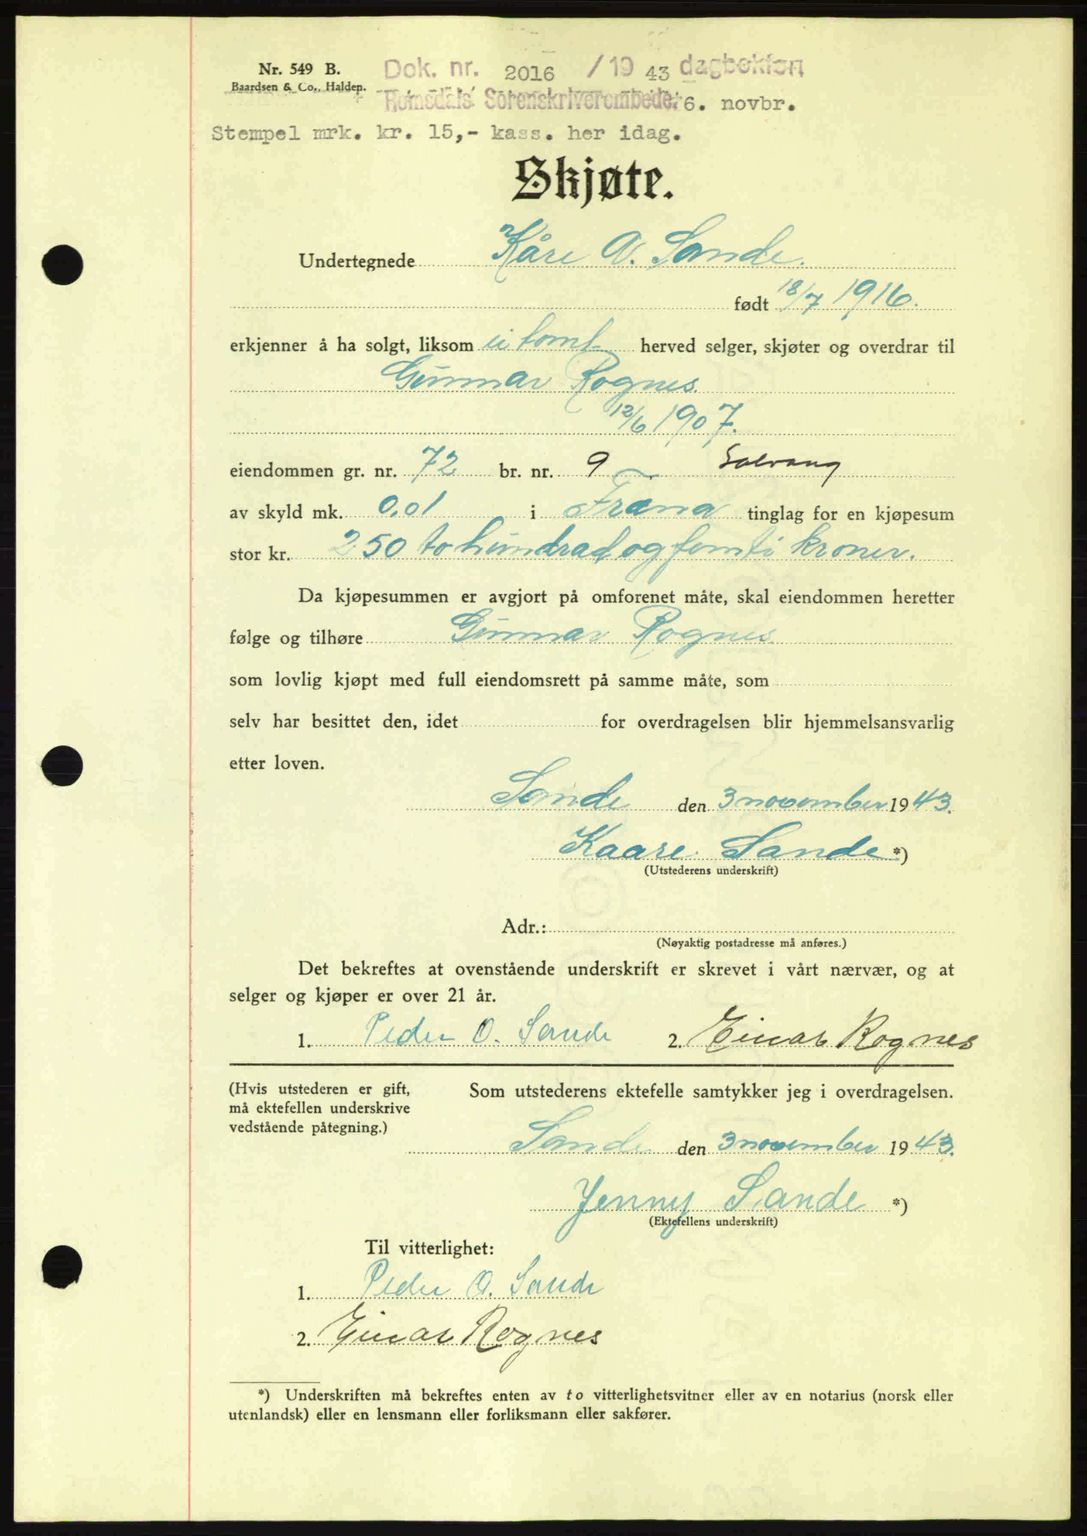 Nr. 549 B.
Baardsen & Co., Halden.
Dok. nr. 2016 /19 43 dagboken
Romsdals Sorenskriverembede 6. novbr.
Stempel mrk. kr. 15,- kass. her idag.
Skjøte.
Undertegnede Kåre A. Sande.
født 18/7 1916.
erkjenner å ha solgt, liksom ei tomt herved selger, skjøter og overdrar til
Gunnar Rognes.
12/6 1907.
eiendommen gr. nr. 72 br. nr. 9 Solvang
av skyld mk. 0,01 i Fræna tinglag for en kjøpesum
stor kr. 250 to hundrad og femti kroner.
Da kjøpesummen er avgjort på omforenet måte, skal eiendommen heretter
følge og tilhøre Gunnar Rognes
som lovlig kjøpt med full eiendomsrett på samme måte, som
selv har besittet den, idet for overdragelsen blir hjemmelsansvarlig
etter loven.
Sande den 3 november 1943.
Kaare Sande *)
(Utstederens underskrift)
Adr.:
(Nøyaktig postadresse må anføres.)
Det bekreftes at ovenstående underskrift er skrevet i vårt nærvær, og at
selger og kjøper er over 21 år.
1. Peder O. Sande 2. Einar Rognes
(Hvis utstederen er gift, Som utstederens ektefelle samtykker jeg i overdragelsen.
må ektefellen underskrive
vedstående påtegning.)
Sande den 3 november 1943.
Jenny Sande *)
(Ektefellens underskrift)
Til vitterlighet:
1. Peder O. Sande
2. Einar Rognes
*) Underskriften må bekreftes enten av to vitterlighetsvitner eller av en notarius (norsk eller
utenlandsk) eller en lensmann eller forliksmann eller sakfører.